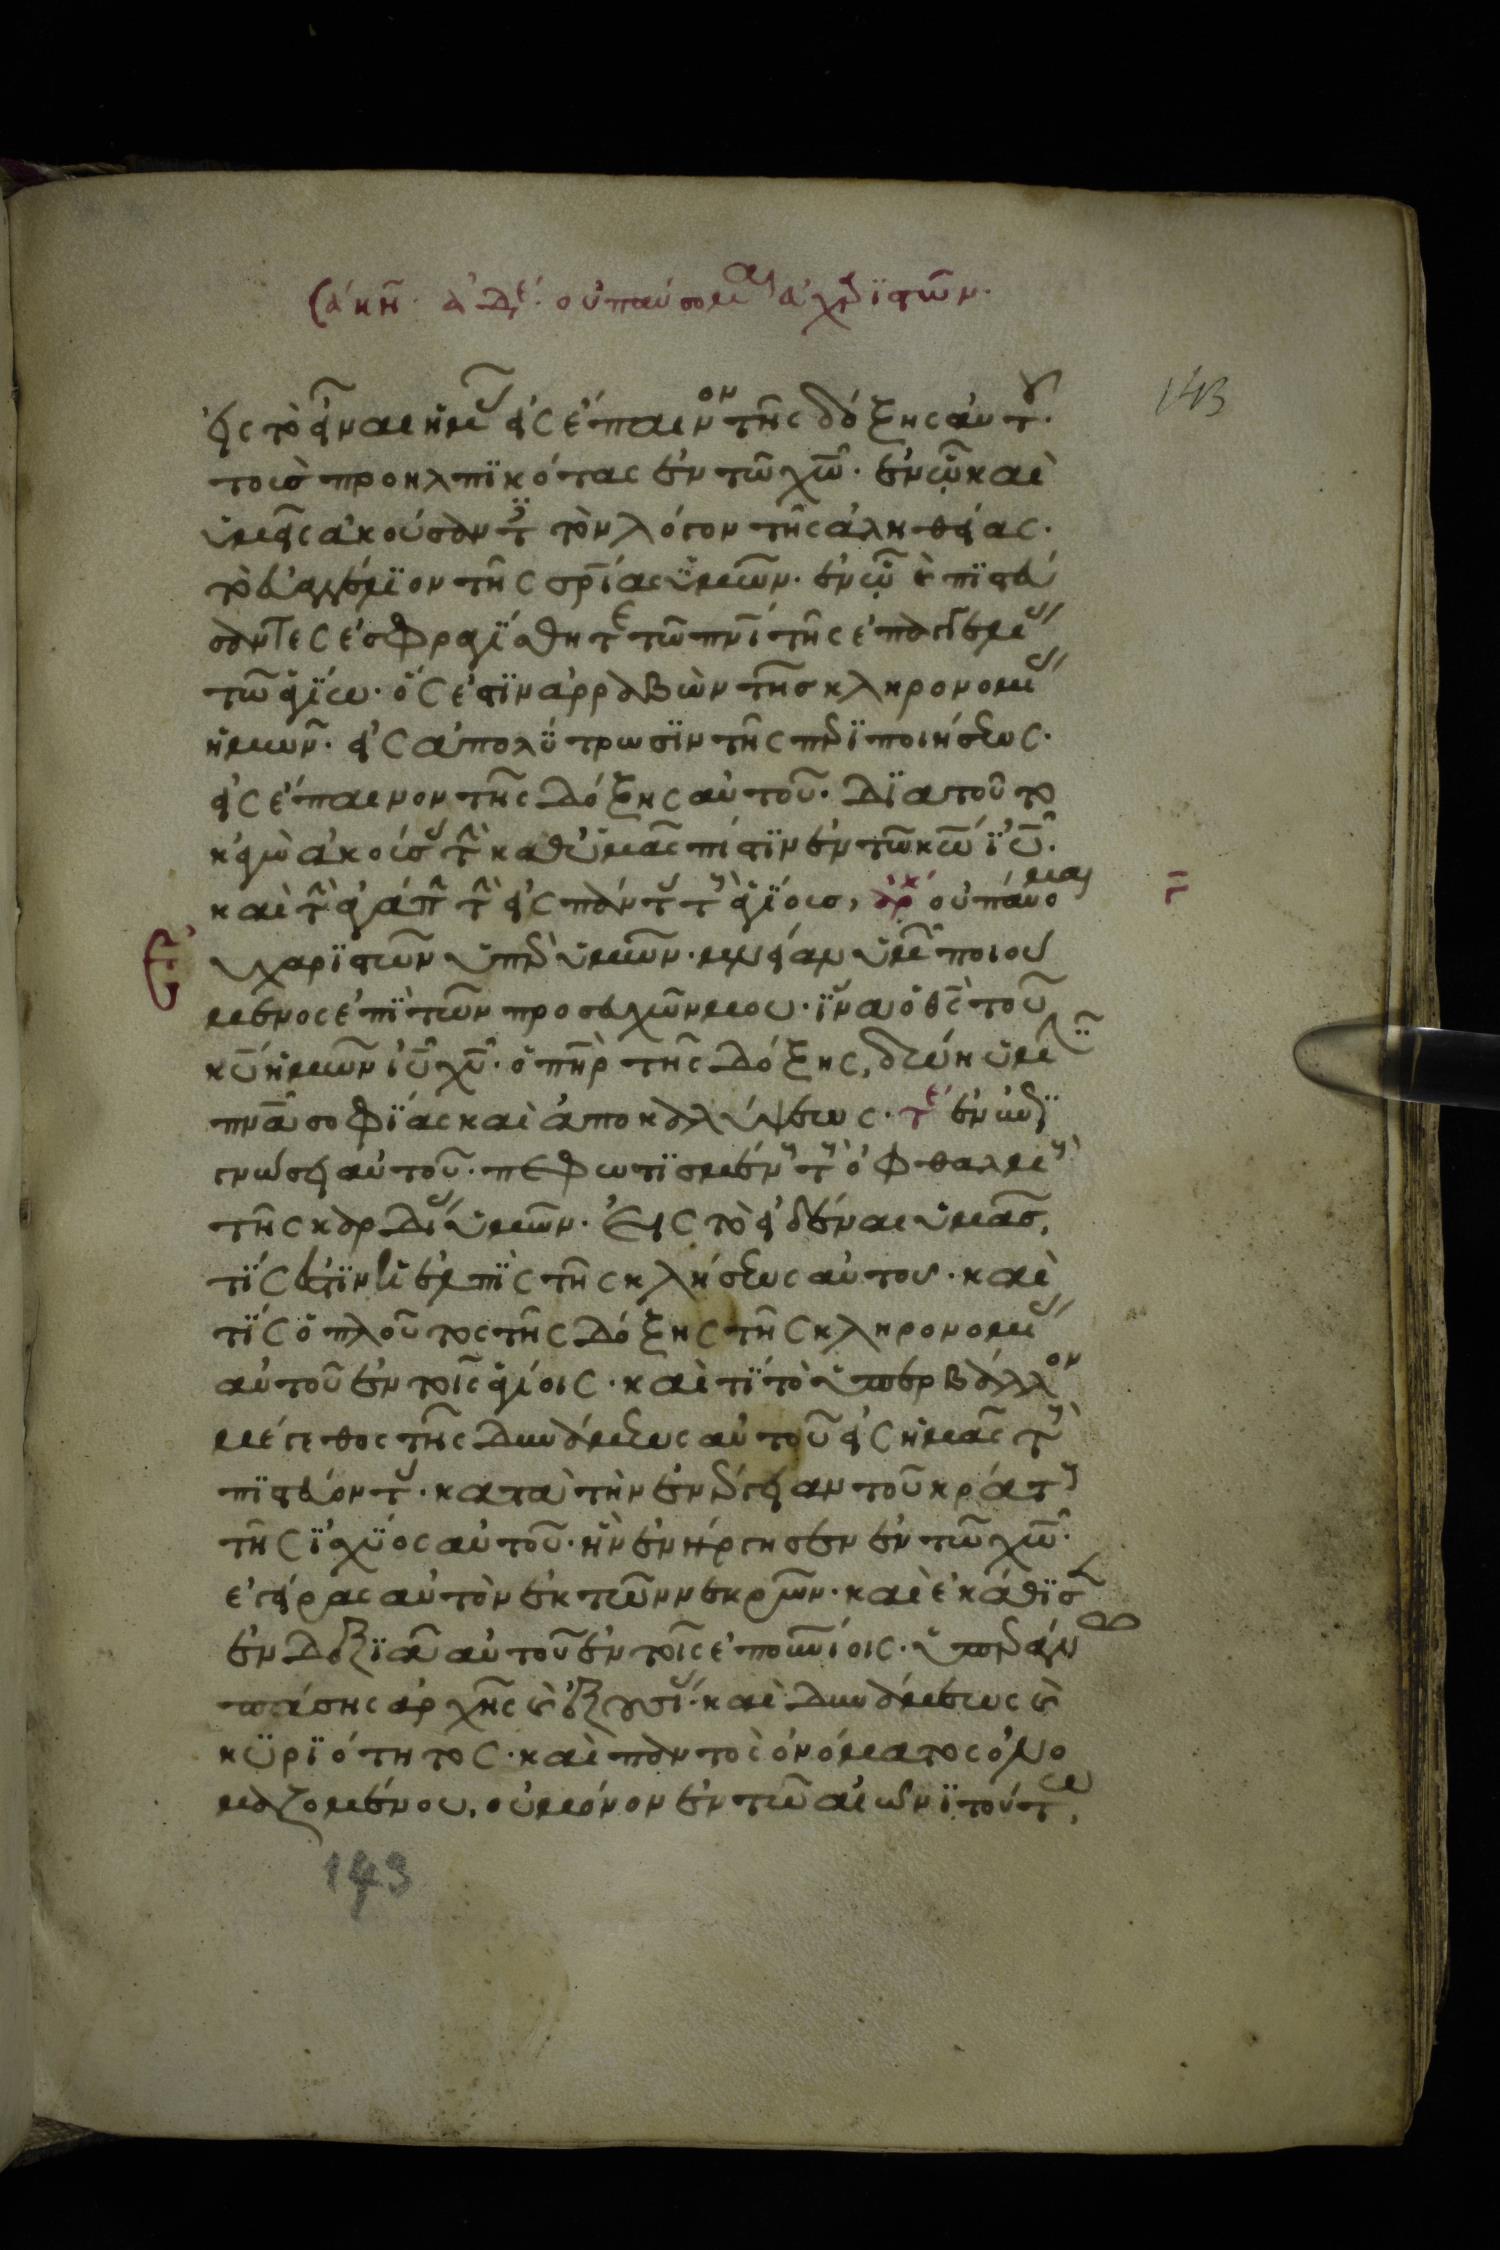 ἀδελφοί· οὐ παύομαι εὐχαριστῶν·
143
εἰς τὸ εἶναι ἡμᾶς εἰς ἔπαινον τῆς δόξης αὐτοῦ·
τοὺς προηλπικότας ἐν τῶ χῶ· ἐν ὧ καὶ
ὑμεῖς ἀκούσαντες τὸν λόγον τῆς ἀληθείας·
τὸ εὐαγγέλιον τῆς σρίας ὑμῶν· ἐν ὧ καὶ πιστεύ
σαντες ἐσφραγίσθητε τῶ πνι τῆς ἐπαγγελίας
τῶ ἁγίω· ὅς ἐστιν ἀρραβὼν τῆς κληρονομίας
ἡμῶν· εἰς ἀπολύτρωσιν τῆς περιποιήσεως·
εἰς ἔπαινον τῆς δόξης αὐτοῦ· Διὰ τοῦτο
κἀγὼ ἀκούσας τὴν καθ ὑμᾶς πίστιν ἐν τῶ κω ιυ·
καὶ τὴν ἀγάπην τὴν εἰς πάντας τοὺς ἁγίους, ἀρχ οὐ παύομαι
εὐχαριστῶν ὑπὲρ ὑμῶν· μνείαν ὑμῶν ποιού
μενος ἐπὶ τῶν προσευχῶν μου· ἵνα ὁ θς τοῦ
κυ ἡμῶν ιυ χυ· ὁ πηρ τῆς δόξης, δώη ὑμῖν
πνα σοφίας καὶ ἀποκαλύψεως· τε ἐν ἐπι
γνώσει αὐτοῦ· πεφωτισμένους τοὺς ὀφθαλμοὺς
τῆς καρδίας ὑμῶν· Εἰς τὸ εἰδέναι ὑμᾶς,
τίς ἐστιν ἡ ἐλπὶς τῆς κλήσεως αὐτοῦ· καὶ
τίς ὁ πλοῦτος τῆς δόξης τῆς κληρονομίας
αὐτοῦ ἐν τοῖς ἁγίοις· καὶ τί τὸ ὑπερβάλλον
μέγεθος τῆς δυνάμεως αὐτοῦ εἰς ἡμᾶς τοὺς
πιστεύοντας· κατὰ τὴν ἐνέργειαν τοῦ κράτους
τῆς ἰσχύος αὐτοῦ· ἣν ἐνήργησεν ἐν τῶ χω·
ἐγείρας αὐτὸν ἐκ τῶν νεκρῶν· καὶ ἐκάθισεν
ἐν δεξιᾶ αὐτοῦ ἐν τοῖς ἐπουνίοις· ὑπεράνω
πάσης ἀρχῆς καὶ ἐξουσίας· καὶ δυνάμεως καὶ
κυριότητος· καὶ παντὸς ὀνόματος ὀνο
μαζομένου, οὐ μόνον ἐν τῶ αἰῶνι τούτω,
143